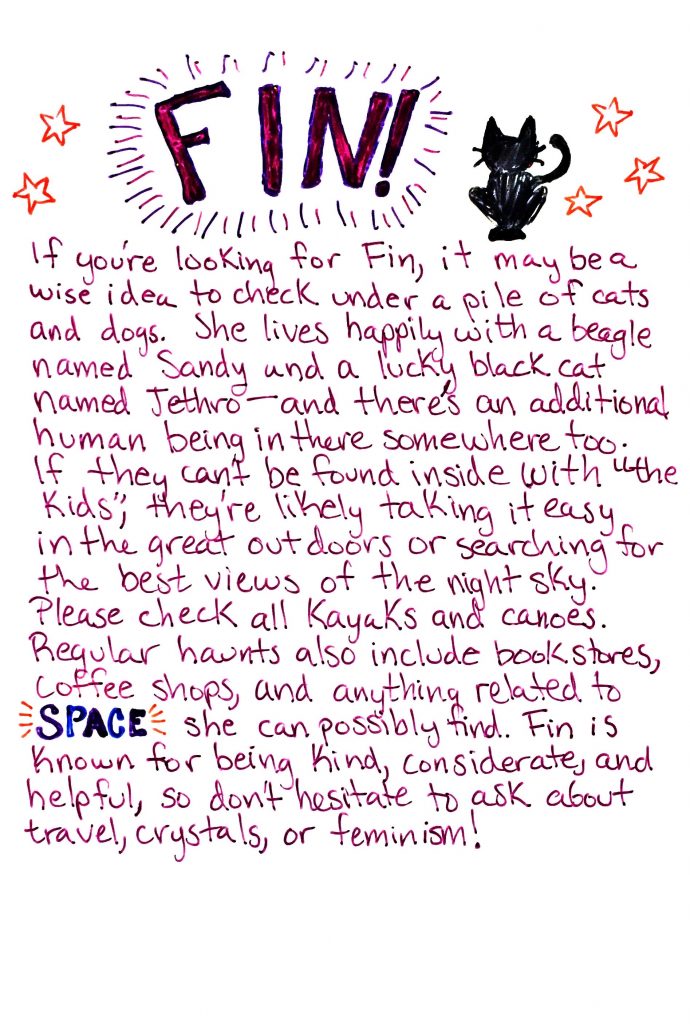 FIN!
If you're looking for Fin, it may be a
wise idea to check under a pile of cats
and dogs. She lives happily with a beagle
named Sandy and a lucky black cat
named Jethro—and there's an additional
human being in there somewhere too.
If they can't be found inside with "the
Kids", they're likely taking it easy
in the great outdoors or searching for
the best views of the night sky.
Please check all Kayaks and canoes.
Regular haunts also include bookstores,
coffee shops, and anything related to
SPACE she can possibly find. Fin is
known for being kind, considerate, and
helpful, so don't hesitate to ask about
travel, crystals, or feminism!